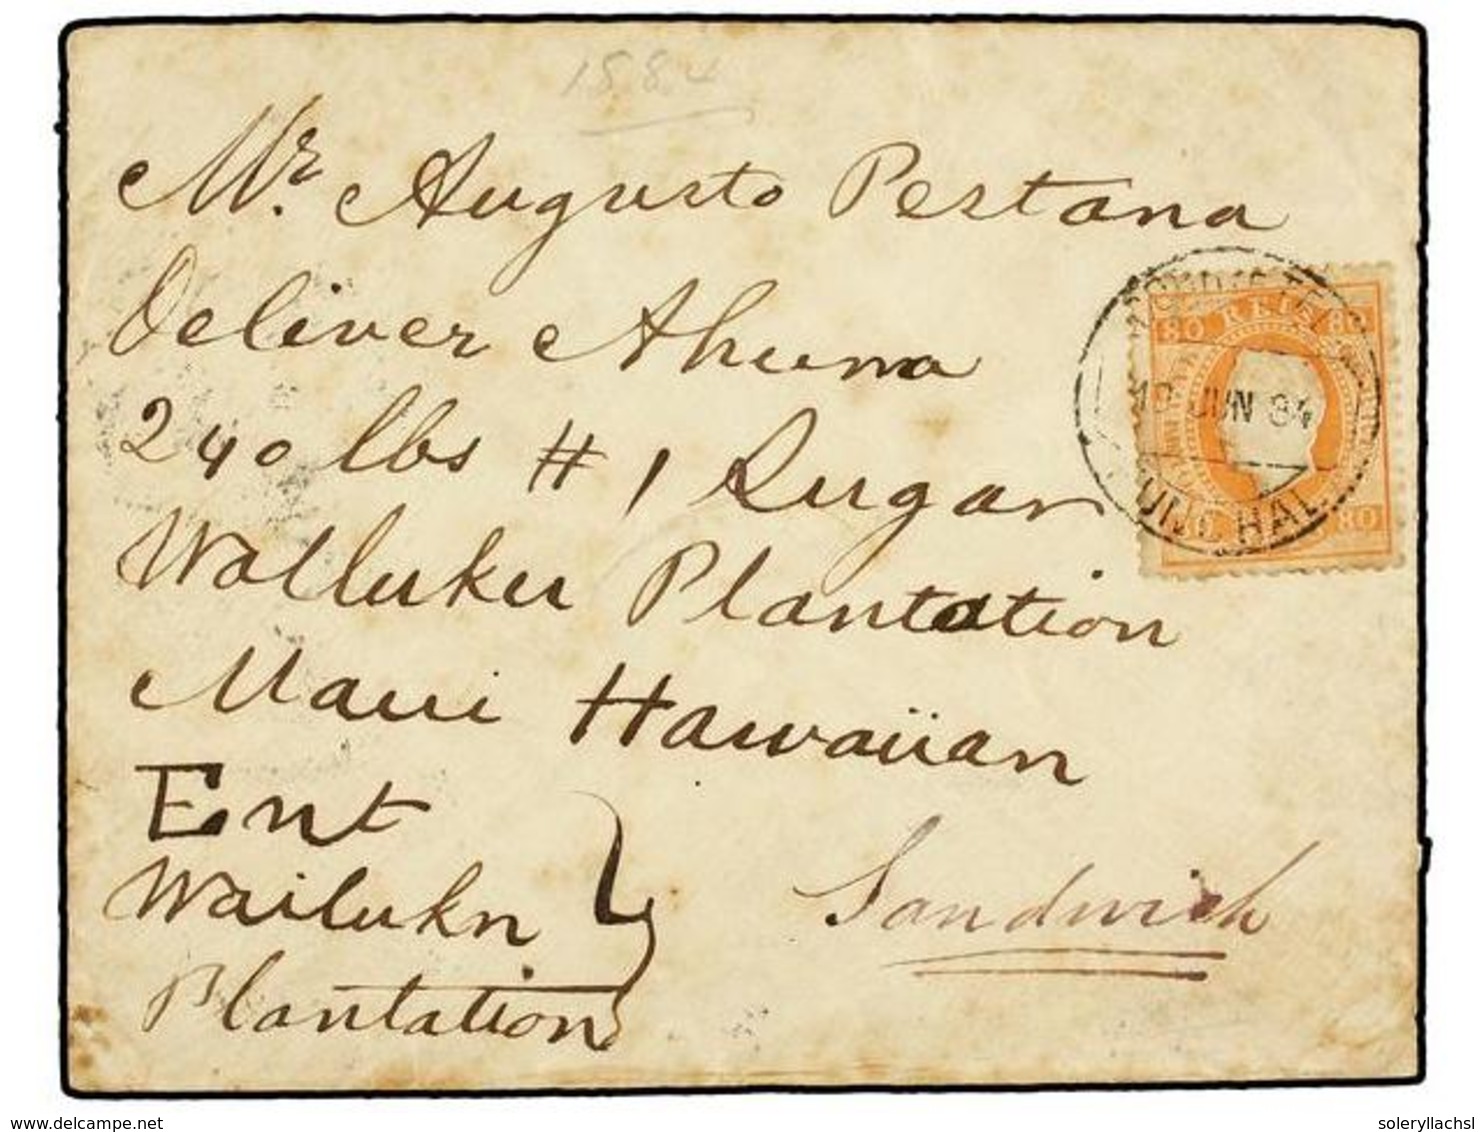 1884
Mr. Augusto Pestana
Deliver Ahuna
240 lbs # 1 Sugar
Wailuku Plantation
Maui Hawaiian
Ent
Wailuku
Plantation
Sandwich
80 REIS 80
13 JUN 84
FUNCHAL
80
www.delcampe.net
soleryllachsl